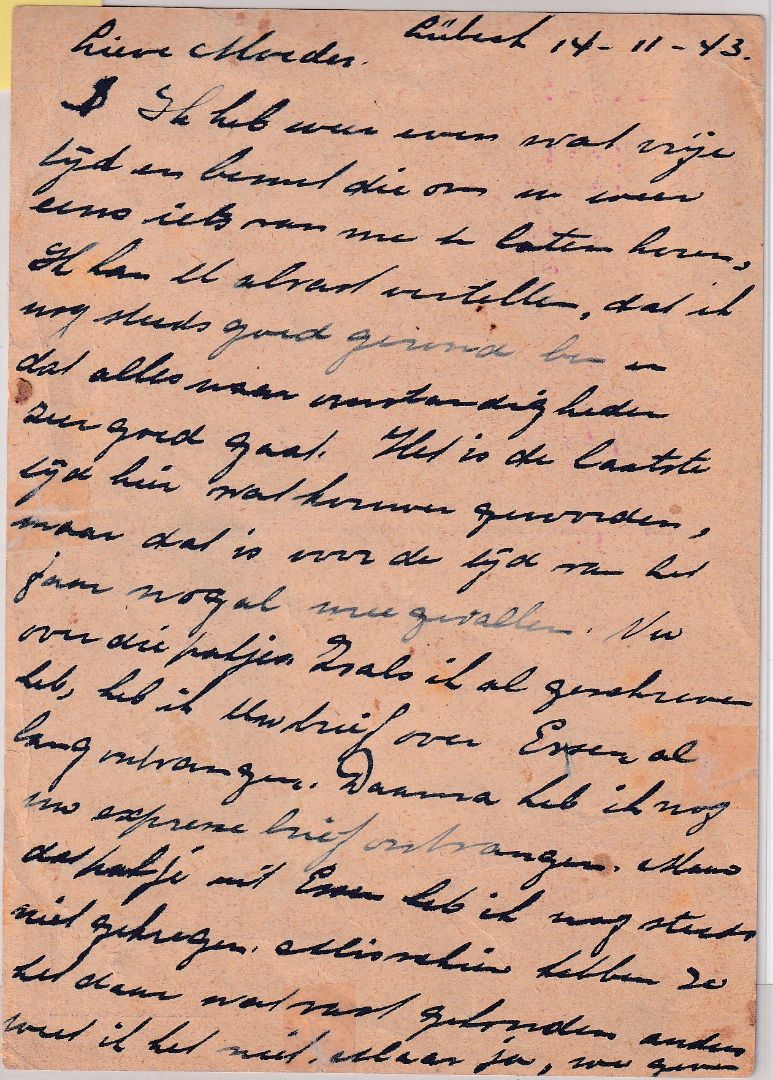 Lübeck 14-11-43.
Lieve Moeder.
Ik heb weer even wat vrije
tijd en benut die om u weer
eens iets van me te laten horen.
Ik kan U alvast vertellen, dat ik
nog steeds goed gezond ben en
dat alles naar omstandigheden
zeer goed gaat. Het is de laatste
tijd hier wat kouwer geworden,
maar dat is voor de tijd van het
jaar nogal meegevallen. Nu
over die pakjes. Zoals ik al geschreven
heb, heb ik Uw brief over Essen al
lang ontvangen. Daarna heb ik nog
uw expresse brief ontvangen. Maar
dat pakje uit Essen heb ik nog steeds
niet gekregen. Misschien hebben ze
het daar wat vast gehouden anders
weet ik het niet. Maar ja, we geven